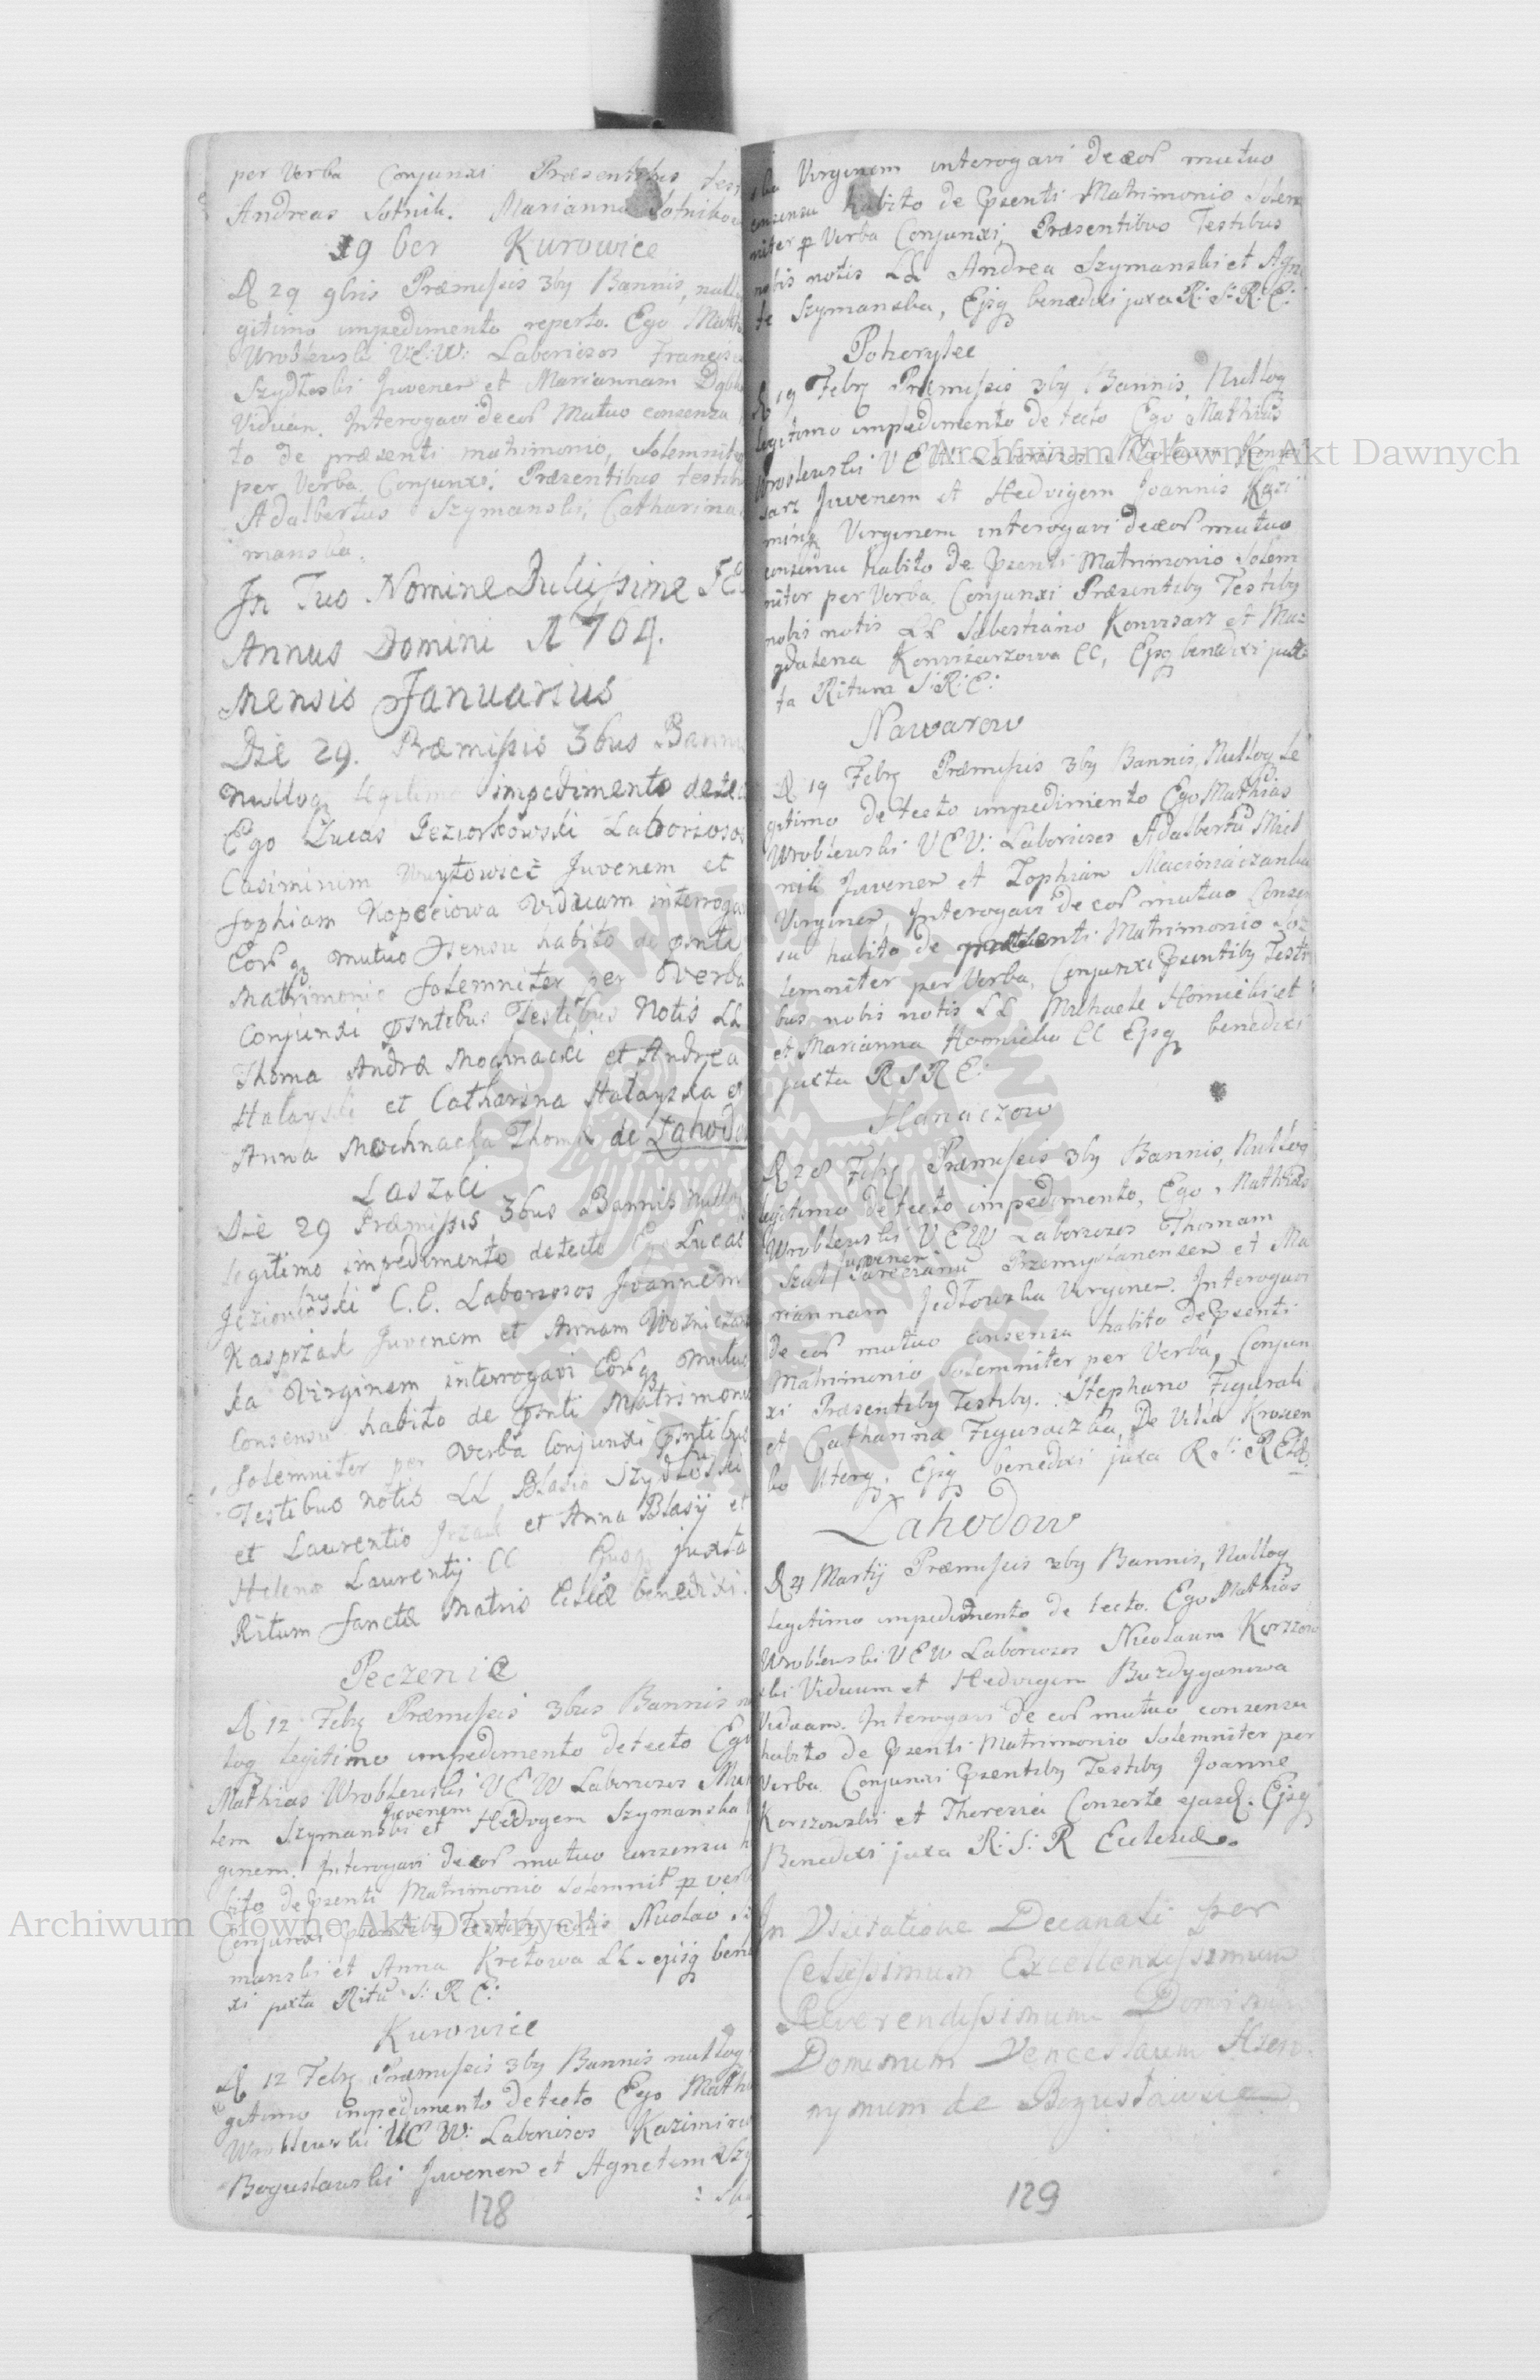 per Verba Conjunxi Præsentibus tes
Andreas Sotnik. Marianna Sotnikow
19 ber Kurowice
D 29 9bris Præmissis 3by Bannis, null
gitimo impedimento reperto. Ego Math
Wroblewski VE:W: Laboriosos Francisc
Szydłoski Juvenem et Mariannam
Viduam. Interogavi de eor Mutuo consenzu
to de præsenti matrimonio, Solemnite
per Verba Conjunxi. Præzentibus testib
Adalbertus Szymanski, Catharina
manska.
In Tuo Nomine Dulcissime JE
Annus Domini 1764.
Mensis Januarius
Die 29. Præmissis 3bus Bann
Nulloq legitimo impedimento detec
Ego Lucas Jeziorkowski Laboriosos
Casimirum Woytowicz Juvenem et
Sophiam Kopeciowa Viduam interroga
Eorq mutuo Psensu habito de Psnti
Matrimonio Solemniter per Verba
Conjunxi Psntibus Testibus Notis LL
Thoma Andrea Mochnacki et Andrea
Hałayski et Catharina Hałayska et
Anna Mochnacka Thomæ de Lahodo
Laszki
Die 29 Præmissis 3bus Bannis Nullo
legitimo impedimento detecto Ego Lucas
Jeziorkowski C.E. Laboriosos Joannem
Kasprzak Juvenem et Annam Wozniczo
ka Virginem interrogavi Eorq Mutuo
Consensu habito de Psnti Matrimonio
Solemniter per Verba Conjunxi Psntibus
Testibus Notis LL Blasio Szydłoski
et Laurentio et Anna Blasij et
Helena Laurentij CC Ejusq juxta
Ritum Sanctæ Matris Ecliæ benedixi.
Peczenie
D 12 Febr Præmissis 3bus Bannis n
loq legitimo impedimento detecto Ego
Mathias Wroblewski VEW Laboriosos Mic
lem Szymanski Juvenem et Hedvigem Szymanska
ginem. Interogavi de eor mutuo consenzu h
bito de Pzenti Matrimonio Solemnit p verb
Conjunxi pzentiby Testiby notis Nicolao
manski et Anna Kretowa LL ejusq bene
xi juxta Ritu S: R E:
Kurowice
D 12 Febr Præmissis 3by Bannis nulloq
gitimo impedimento detecto Ego Math
Wroblewski VE W: Laboriosos Kazimiru
Boguslawski Juvenem et Agnetem Szy
: ska
128
ska Virginem interogavi de eor mutuo
consenzu habito de Pzenti Matrimonio Solem
niter p Verba Conjunxi, Præsentibus Testibus
nobis notis LL Andrea Szymanski et Agne
te Szymanska, Ejsq benedixi juxa R: S: R: E:
Pohorylce
D 19 Febr Præmissis 3by Bannis, Nulloq
legitimo impedimento detecto Ego Mathias
Wroblewski VEW Laboriosos
sarz Juvenem et Hedvigem Joannis Kazi
Virginem interogavi de eor mutuo
consenzu habito de Pzenti Matrimonio Solem
niter per Verba Conjunxi Præsentiby Testiby
nobis notis LL Sebestiano Konwisarz et Ma
gdalena Konwizarzowa CC, Ejsq benedixi jux
ta Ritum S: R: E:
Nawarow
D 19 Febr Præmissis 3by Bannis, Nulloq Le
gitimo detecto impedimento Ego Mathias
Wroblewski VEV: Laboriosos Adalbertu
nik Juvenem et Zophian
Virginem Interogavi de eor mutuo Consen
su habito de præsenti Matrimonio So
lemniter per Verba, Conjunxi Pzentiby Testi
bus nobis notis LL Michaele Homicki et
et Marianna Homicka CC Ejsq benedixi
juxta R S R E:
Hanaczow
D 28 Febr Præmissis 3by Bannis, Nulloq
legitimo detecto impedimento, Ego Mathias
Wroblewski VEW Laboriosos Thomam
Juvenem Przemyslanensem et Ma
riannam Jedłowska Virginem. Interogavi
de eor mutuo consenzu habito de Pzenti
Matrimonio Solemniter per Verba, Conjun
xi Præsentiby Testiby. Stephano Figurali
et Catharina De Villa Krosien
ko Uterq. Ejsq benedixi juxa R S: R Eccl
Lahodow
D 4 Martij Præmissis 3by Bannis, Nulloq
legitimo impedimento detecto. Ego Mathias
Wroblewski VEW Laboriosos Nicolaum Korzzow
ski Viduum et Hedvigem Buzdyganowa
Viduam. Interogavi de eor mutuo consenzu
habito de Pzenti Matrimonio Solemniter per
Verba Conjunxi Pzentiby Testiby Joanne
Korzowski et Therezia Conzorte ejusd. Ejsq
Benedixi juxa R: S: R Eccleziæ.
In Visitatione Decanali per
Celsissimum Excellentissimum
Reverendissimum Dominum
Dominum Venceslaum Hiero
nymum de Bogusławice
129
Archiwum Główne Akt Dawnych
Archiwum Główne Akt Dawnych